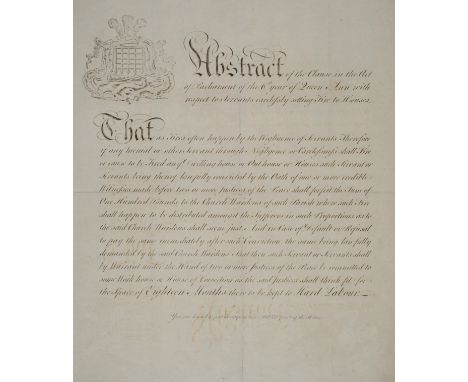 Abstract of the Clause in the Act
of Parliament of the 6 year of Queen Ann with
respect to Servants carelessly setting Fire to Houses.
That as Fires often happen by the Negligence of Servants Therefore
if any menial or other Servant through Negligence or Carelessness shall Fire
or cause to be Fired any Dwelling house or Out house or Houses such Servant or
Servants being thereof lawfully convicted by the Oath of one or more credible
Witnesses made before two or more Justices of the Peace shall forfeit the Sum of
One Hundred Pounds to the Church Wardens of such Parish where such Fire
shall happen to be distributed amongst the Sufferers in such Proportions as to
the said Church Wardens shall seem just And in Case of Default or Refusal
to pay the same immediately after such Conviction, the same being lawfully
demanded by the said Church Wardens That then such Servant or Servants shall
by Warrant under the Hand of two or more Justices of the Peace be committed to
some Work house or House of Correction as the said Justices shall think fit for
the Space of Eighteen Months there to be kept to Hard Labour
You are desired to